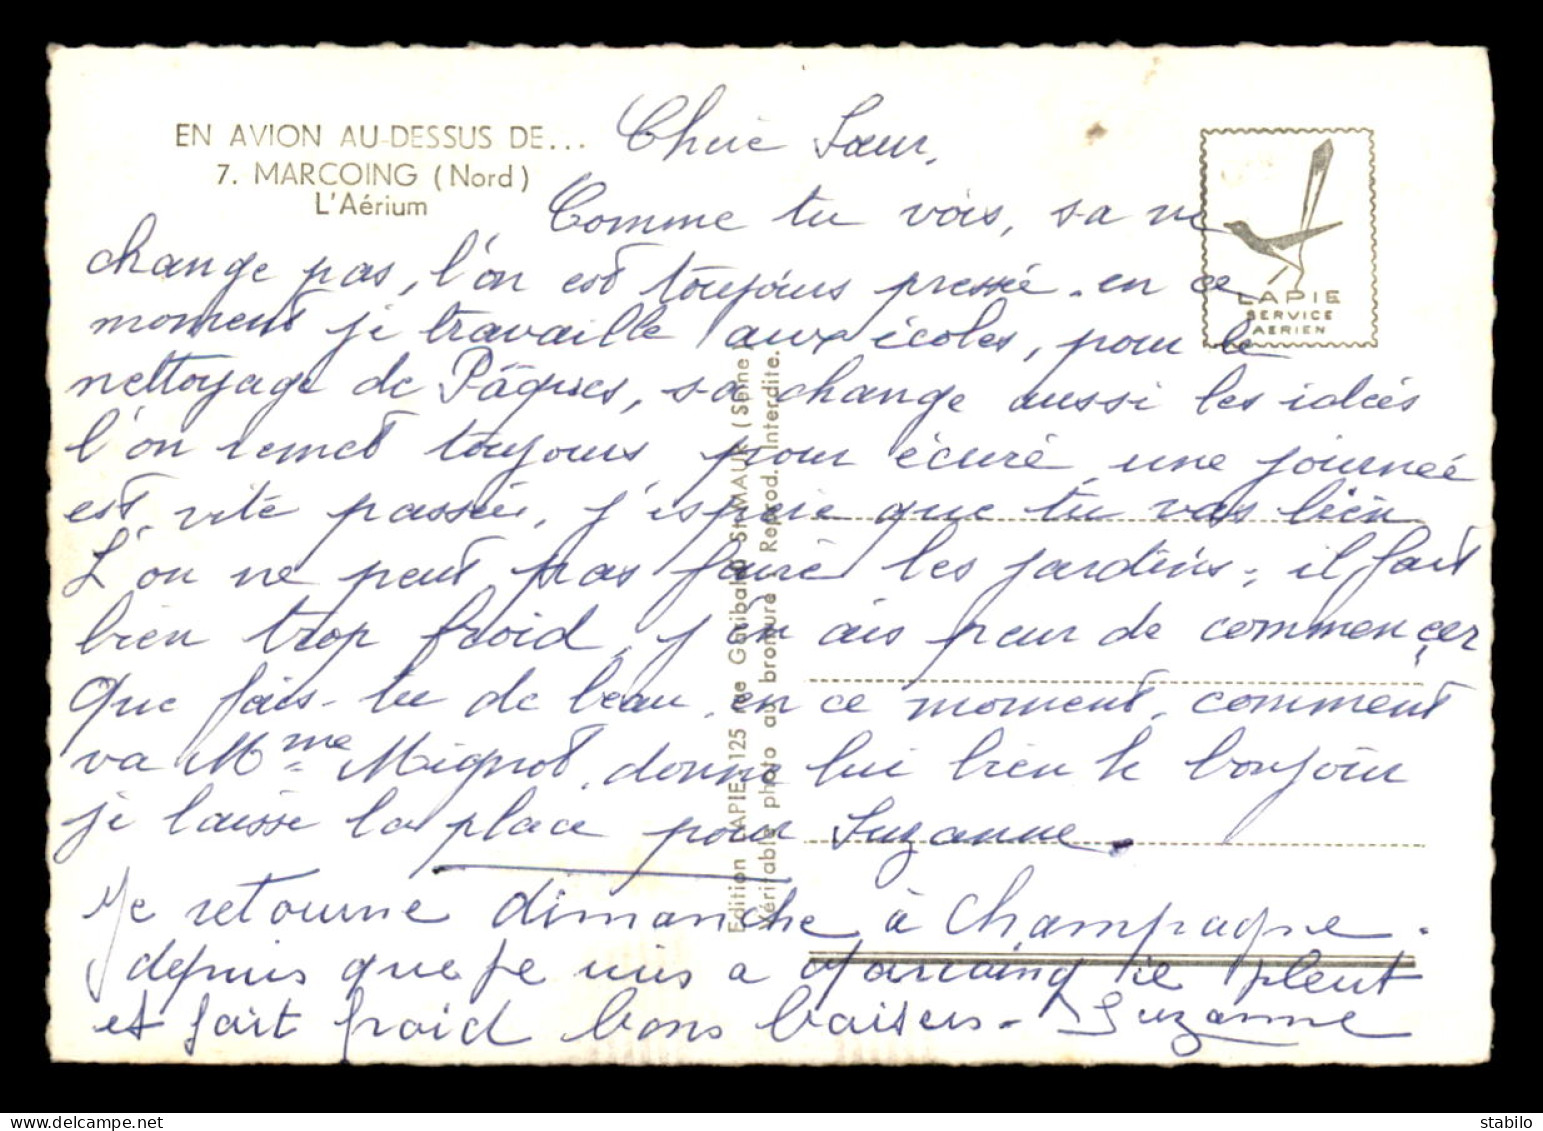 EN AVION AU-DESSUS DE...
7. MARCOING (Nord)
L'Aérium
LAPIE
SERVICE
AERIEN
Edition LAPIE, 125 rue Garibaldi St-MAUR (Seine)
Véritable photo au bromure Reprod. Interdite.
Chère Sœur,
Comme tu vois, sa ne
change pas, l'on est toujours pressé. en ce
moment je travaille aux écoles, pour le
nettoyage de Pâques, sa change aussi les idées
l'on remet toujours pour écuré une journeé
est vite passée, j'espère que tu vas bien
L'on ne peut pas faire les jardins, il fait
bien trop froid, j'en ais peur de commencer
que fais-tu de beau, en ce moment, comment
va Mme Mignot, donne lui bien le bonjour
je laisse la place pour Suzanne.
Je retourne dimanche à Champagne.
depuis que je suis a Marcoing il pleut
et fait froid bons baisers - Suzanne
delcampe.net stabilo